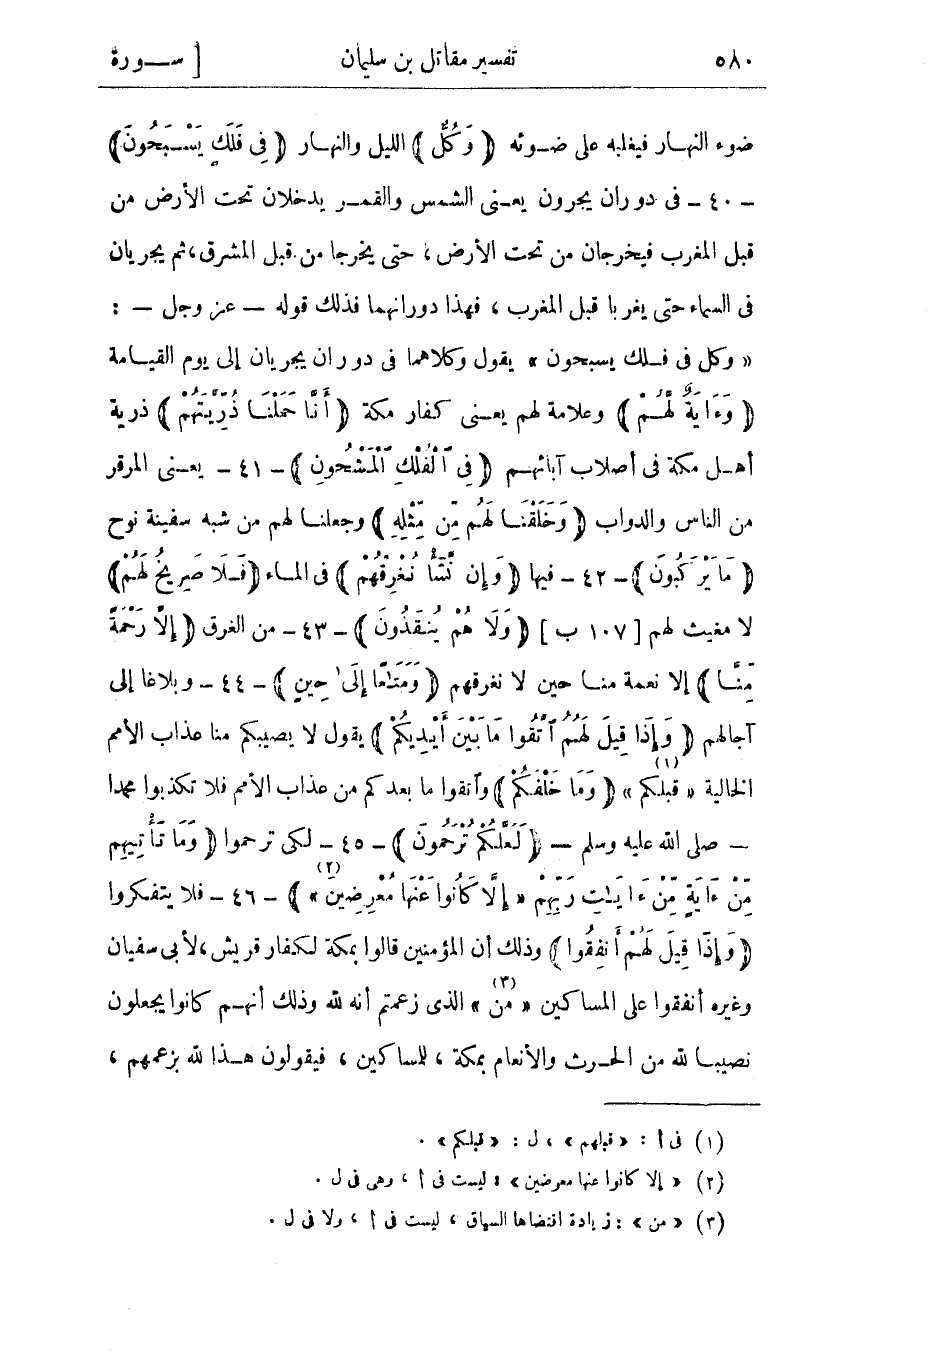 ٥٨٠ تفسير مقاتل بن سليمان [ ســورة
ضوء النهـار فيغلبه على ضـوئه ﴿ وَكُلٌّ ﴾ الليل والنهـار ﴿ فِى فَلَكٍ يَسْـبَحُونَ﴾
ـ ٤٠ ـ فى دوران يجرون يعـنى الشمس والقمـر يدخلان تحت الأرض من
قبل المغرب فيخرجان من تحت الأرض ، حتى يخرجا من قبل المشرق ، ثم يجريان
فى السماء حتى يغربا قبل المغرب ، فهذا دورانهما فذلك قوله — عز وجل — :
« وكل فى فـلك يسبحون » يقول وكلاهما فى دوران يجريان إلى يوم القيـامة
﴿ وَءَايَةٌ لَّهُـمْ ﴾ وعلامة لهم يعـنى كفار مكة ﴿ أَنَّا حَمَلْنَـا ذُرِّيَّتَهُمْ ﴾ ذرية
أهـل مكة فى أصلاب آبائهـم ﴿ فِى ٱلْفُلْكِ ٱلْمَشْحُونِ ﴾ ـ ٤١ ـ يعـنى المرقر
من الناس والدواب ﴿ وَخَلَقْنَـا لَهُم مِّن مِّثْلِهِ ﴾ وجعلنـا لهم من شبه سفينة نوح
﴿ مَا يَرْكَبُونَ ﴾ ـ ٤٢ ـ فيها ﴿ وَإِن نَّشَأْ نُغْرِقْهُمْ ﴾ فى المـاء ﴿ فَـلَا صَرِيخَ لَهُمْ ﴾
لا مغيث لهم [ ١٠٧ ب ] ﴿ وَلَا هُمْ يُنقَذُونَ ﴾ ـ ٤٣ ـ من الغرق ﴿ إِلَّا رَحْمَةً
مِّنَّـا ﴾ إلا نعمة منـا حين لا نغرقهم ﴿ وَمَتَـٰعًا إِلَىٰ حِينٍ ﴾ ـ ٤٤ ـ وبلاغا إلى
آجالهم ﴿ وَإِذَا قِيلَ لَهُمُ ٱتَّقُوا مَا بَيْنَ أَيْـدِيكُمْ ﴾ يقول لا يصيبكم منا عذاب الأمم
الخالية « قبلكم »(١) ﴿ وَمَا خَلْفَكُمْ ﴾ وآتقوا ما بعدكم من عذاب الأمم فلا تكذبوا محمدا
— صلى الله عليه وسلم — ﴿ لَعَلَّكُمْ تُرْحَمُونَ ﴾ ـ ٤٥ ـ لكى ترحموا ﴿ وَمَا تَأْتِيهِم
مِّنْ ءَايَةٍ مِّنْ ءَايَـٰتِ رَبِّهِمْ « إِلَّا كَانُوا عَنْهَا مُعْرِضِينَ »(٢) ﴾ ـ ٤٦ ـ فلا يتفكروا
﴿ وَإِذَا قِيلَ لَهُمْ أَنفِقُوا ﴾ وذلك أن المؤمنين قالوا بمكة لكفار قريش ، لأبى سفيان
وغيره أنفقوا على المساكين « من »(٣) الذى زعمتم أنه لله وذلك أنهـم كانوا يجعلون
نصيبـا لله من الحـرث والأنعام بمكة ، للمساكين ، فيقولون هـذا لله بزعمهم ،
(١) فى أ : « قبلهم » ، ل : « قبلكم » .
(٢) « إلا كانوا عنها معرضين » : ليست فى أ ، وهى فى ل .
(٣) « من » : زيادة اقتضاها السياق ، ليست فى أ ، ولا فى ل .